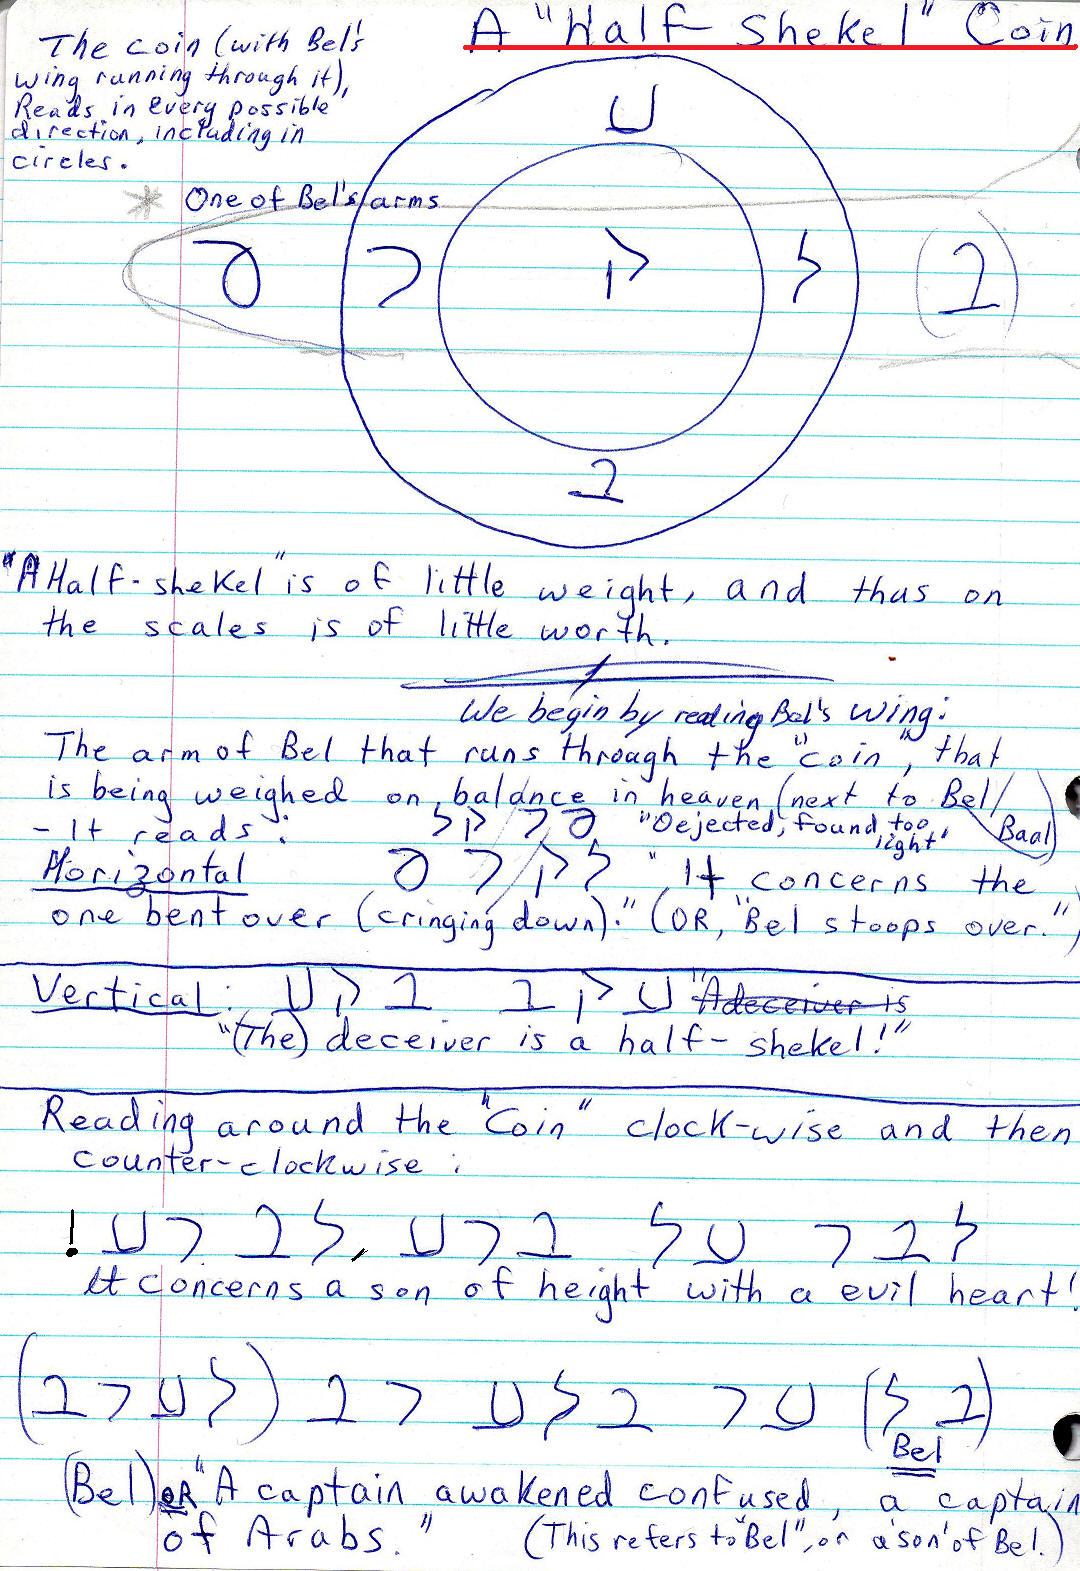 A "Half-Shekel" Coin
The coin (with Bel's
wing running through it),
Reads in every possible
direction, including in
circles.
* One of Bel's arms
"A Half-shekel" is of little weight, and thus on
the scales is of little worth.
We begin by reading Bel's wing:
The arm of Bel that runs through the "coin", that
is being weighed on balance in heaven (next to Bel/
Baal)
- It reads: "Dejected, found too
light"
Horizontal " It concerns the
one bent over (cringing down)." (OR, "Bel stoops over.")
Vertical: "A deceiver is
"(The) deceiver is a half-shekel!"
Reading around the "Coin" clock-wise and then
counter-clockwise:
It concerns a son of height with a evil heart!
Bel
(Bel) OR "A captain awakened confused, a captain
of Arabs." (This refers to "Bel", or a 'son' of Bel.)